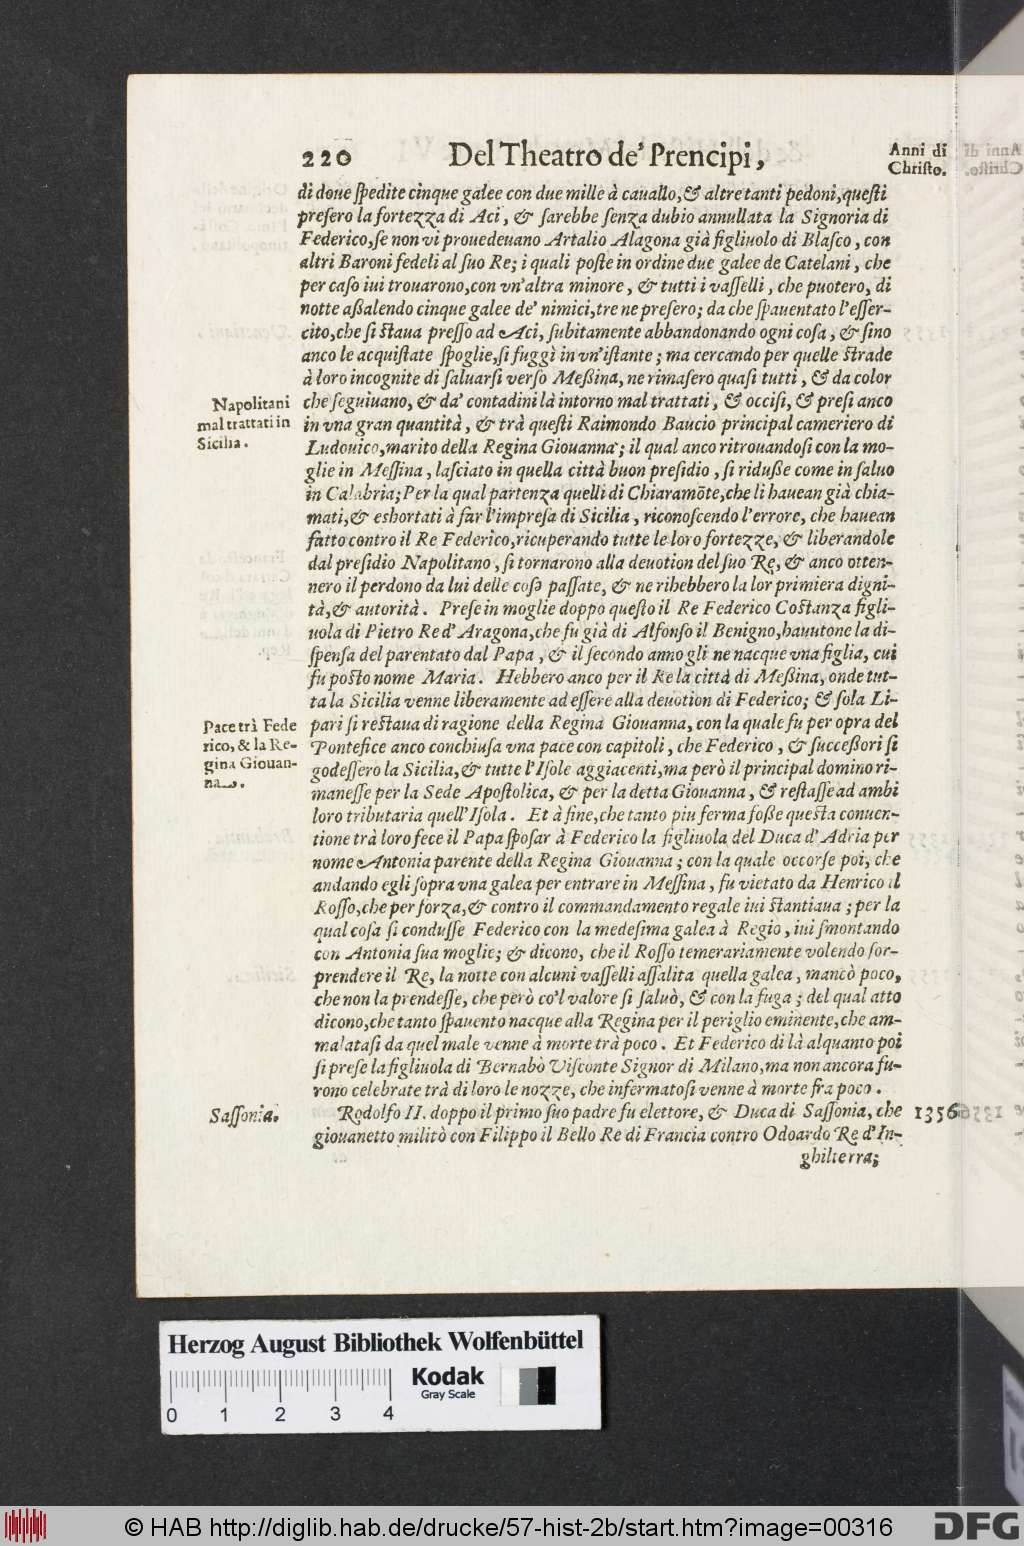 220 Del Theatro de' Prencipi,
Anni di
Christo.
di doue ſpedite cinque galee con due mille à cauallo, & altretanti pedoni, queſti
preſero la fortezza di Aci, & ſarebbe ſenza dubio annullata la Signoria di
Federico, ſe non vi prouedeuano Artalio Alagona già figliuolo di Blaſco, con
altri Baroni fedeli al ſuo Re; i quali poſte in ordine due galee de Catelani, che
per caſo iui trouarono, con vn'altra minore, & tutti i vaſſelli, che puotero, di
notte aßalendo cinque galee de' nimici, tre ne preſero; da che ſpauentato l'eſſer-
cito, che ſi ſtaua preſſo ad Aci, ſubitamente abbandonando ogni coſa, & ſino
anco le acquiſtate ſpoglie, ſi fuggì in vn'iſtante; ma cercando per quelle ſtrade
à loro incognite di ſaluarſi verſo Meßina, ne rimaſero quaſi tutti, & da color
Napolitani
mal trattati in
Sicilia.
che ſeguiuano, & da' contadini là intorno mal trattati, & occiſi, & preſi anco
in vna gran quantità, & trà queſti Raimondo Baucio principal cameriero di
Ludouico, marito della Regina Giouanna; il qual anco ritrouandoſi con la mo-
glie in Meſſina, laſciato in quella città buon preſidio, ſi riduße come in ſaluo
in Calabria; Per la qual partenza quelli di Chiaramõte, che li hauean già chia-
mati, & eshortati à far l'impreſa di Sicilia, riconoſcendo l'errore, che hauean
fatto contro il Re Federico, ricuperando tutte le loro fortezze, & liberandole
dal preſidio Napolitano, ſi tornarono alla deuotion del ſuo Re, & anco otten-
nero il perdono da lui delle coſe paſſate, & ne rihebbero la lor primiera digni-
tà, & autorità. Preſe in moglie doppo queſto il Re Federico Coſtanza figli-
uola di Pietro Re d'Aragona, che fu già di Alfonſo il Benigno, hauutone la di-
ſpenſa del parentato dal Papa, & il ſecondo anno gli ne nacque vna figlia, cui
fu poſto nome Maria. Hebbero anco per il Re la città di Meßina, onde tut-
ta la Sicilia venne liberamente ad eſſere alla deuotion di Federico; & ſola Li-
Pace trà Fede
rico, & la Re-
gina Giouan-
na.
pari ſi reſtaua di ragione della Regina Giouanna, con la quale fu per opra del
Pontefice anco conchiuſa vna pace con capitoli, che Federico, & ſucceßori ſi
godeſſero la Sicilia, & tutte l'Iſole aggiacenti, ma però il principal domino ri-
maneſſe per la Sede Apoſtolica, & per la detta Giouanna, & reſtaſſe ad ambi
loro tributaria quell'Iſola. Et à fine, che tanto piu ferma foße queſta conuen-
tione trà loro fece il Papa ſpoſar à Federico la figliuola del Duca d'Adria per
nome Antonia parente della Regina Giouanna; con la quale occorſe poi, che
andando egli ſopra vna galea per entrare in Meſſina, fu vietato da Henrico il
Roſſo, che per forza, & contro il commandamento regale iui ſtantiaua; per la
qual coſa ſi conduſſe Federico con la medeſima galea à Regio, iui ſmontando
con Antonia ſua moglie; & dicono, che il Roſſo temerariamente volendo ſor-
prendere il Re, la notte con alcuni vaſſelli aſſalita quella galea, mancò poco,
che non la prendeſſe, che però co'l valore ſi ſaluò, & con la fuga; del qual atto
dicono, che tanto ſpauento nacque alla Regina per il periglio eminente, che am-
malataſi da quel male venne à morte trà poco. Et Federico di là alquanto poi
ſi preſe la figliuola di Bernabò Viſconte Signor di Milano, ma non ancora fu-
rono celebrate trà di loro le nozze, che infermatoſi venne à morte fra poco.
Saſſonia.
Rodolfo II. doppo il primo ſuo padre fu elettore, & Duca di Saſſonia, che 1356
giouanetto militò con Filippo il Bello Re di Francia contro Odoardo Re d'In-
ghilterra;
Herzog August Bibliothek Wolfenbüttel
Kodak
Gray Scale
0 1 2 3 4
© HAB http://diglib.hab.de/drucke/57-hist-2b/start.htm?image=00316
DFG